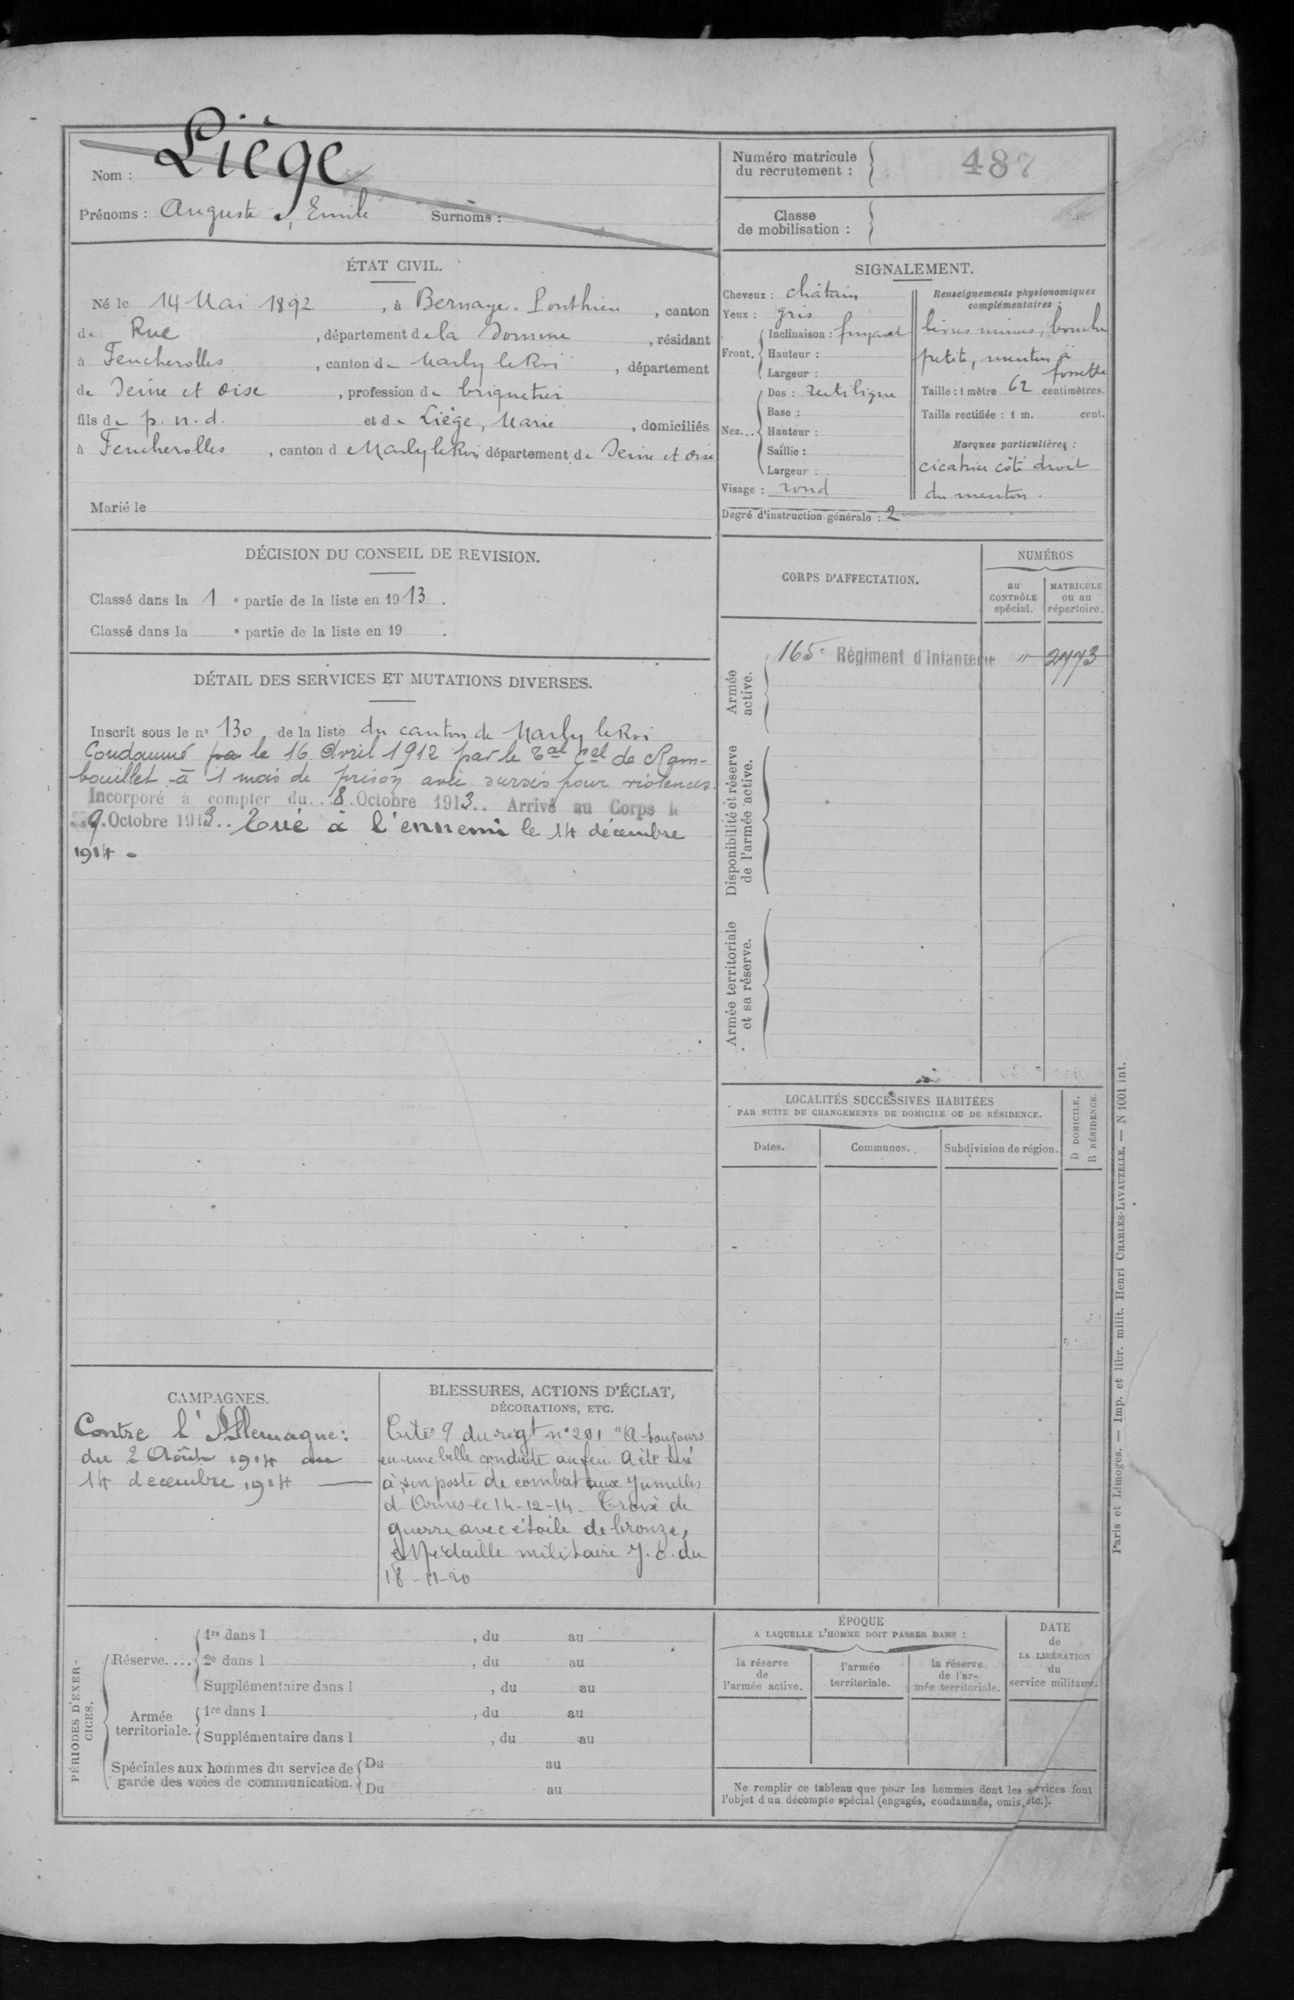 Nom : Liège
Prénoms : Auguste, Emile Surnoms :
Numéro matricule
du recrutement : 487
Classe
de mobilisation :
ÉTAT CIVIL.
Né le 14 Mai 1892, à Bernay-Ponthieu, canton
de Rue, département de la Somme, résidant
à Feucherolles, canton de Marly le Roi, département
de Seine et Oise, profession de briquetier
fils de p. n. d. et de Liège, Marie, domiciliés
à Feucherolles, canton d Marly le Roi département de Seine et Oise
Marié le
SIGNALEMENT.
Cheveux : châtain
Yeux : gris
Front. Inclinaison : fuyant
Hauteur :
Largeur :
Nez... Dos : rectiligne
Base :
Hauteur :
Saillie :
Largeur :
Visage : rond
Renseignements physionomiques
complémentaires :
lèvres minces, bouche
petite, menton à
fossette
Taille : 1 mètre 62 centimètres.
Taille rectifiée : 1 m. cent.
Marques particulières :
cicatrice côté droit
du menton.
Degré d'instruction générale : 2
DÉCISION DU CONSEIL DE REVISION.
Classé dans la 1 e partie de la liste en 1913.
Classé dans la e partie de la liste en 19 .
DÉTAIL DES SERVICES ET MUTATIONS DIVERSES.
Inscrit sous le n° 130 de la liste du canton de Marly le Roi
Condamné le 16 Avril 1912 par le Tal Cel de Ram-
bouillet à 1 mois de prison avec sursis pour violences.
Incorporé à compter du 8 Octobre 1913.. Arrivé au Corps le
9 Octobre 1913.. Tué à l'ennemi le 14 décembre
1914 -
CORPS D'AFFECTATION.
NUMÉROS
au
CONTRÔLE
spécial.
MATRICULE
ou au
répertoire.
Armée
active.
165e Régiment d'Infanterie " 2773
Disponibilité et réserve
de l'armée active.
Armée territoriale
et sa réserve.
LOCALITÉS SUCCESSIVES HABITÉES
PAR SUITE DE CHANGEMENTS DE DOMICILE OU DE RÉSIDENCE.
Dates.
Communes.
Subdivision de région.
D DOMICILE.
R RÉSIDENCE.
CAMPAGNES.
Contre l'Allemagne :
du 2 Août 1914 au
14 decembre 1914
BLESSURES, ACTIONS D'ÉCLAT,
DÉCORATIONS, ETC.
Cité du regt n° 201 "A toujours
eu une belle conduite au feu. A été tué
à son poste de combat aux Jumelles
d'Ornes le 14-12-14. Croix de
guerre avec étoile de bronze,
Médaille militaire J. O. du
18-11-20
PÉRIODES D'EXER-
CICES.
Réserve.... 1re dans l , du au
2e dans l , du au
Supplémentaire dans l , du au
Armée
territoriale. 1re dans l , du au
Supplémentaire dans l , du au
Spéciales aux hommes du service de
garde des voies de communication. Du au
Du au
ÉPOQUE
A LAQUELLE L'HOMME DOIT PASSER DANS :
la réserve
de
l'armée active.
l'armée
territoriale.
la réserve
de l'ar-
mée territoriale.
DATE
de
LA LIBÉRATION
du
service militaire.
Ne remplir ce tableau que pour les hommes dont les services font
l'objet d'un décompte spécial (engagés, condamnés, omis, etc.).
Paris et Limoges. — Imp. et libr. milit. Henri CHARLES-LAVAUZELLE. — N 1001 int.